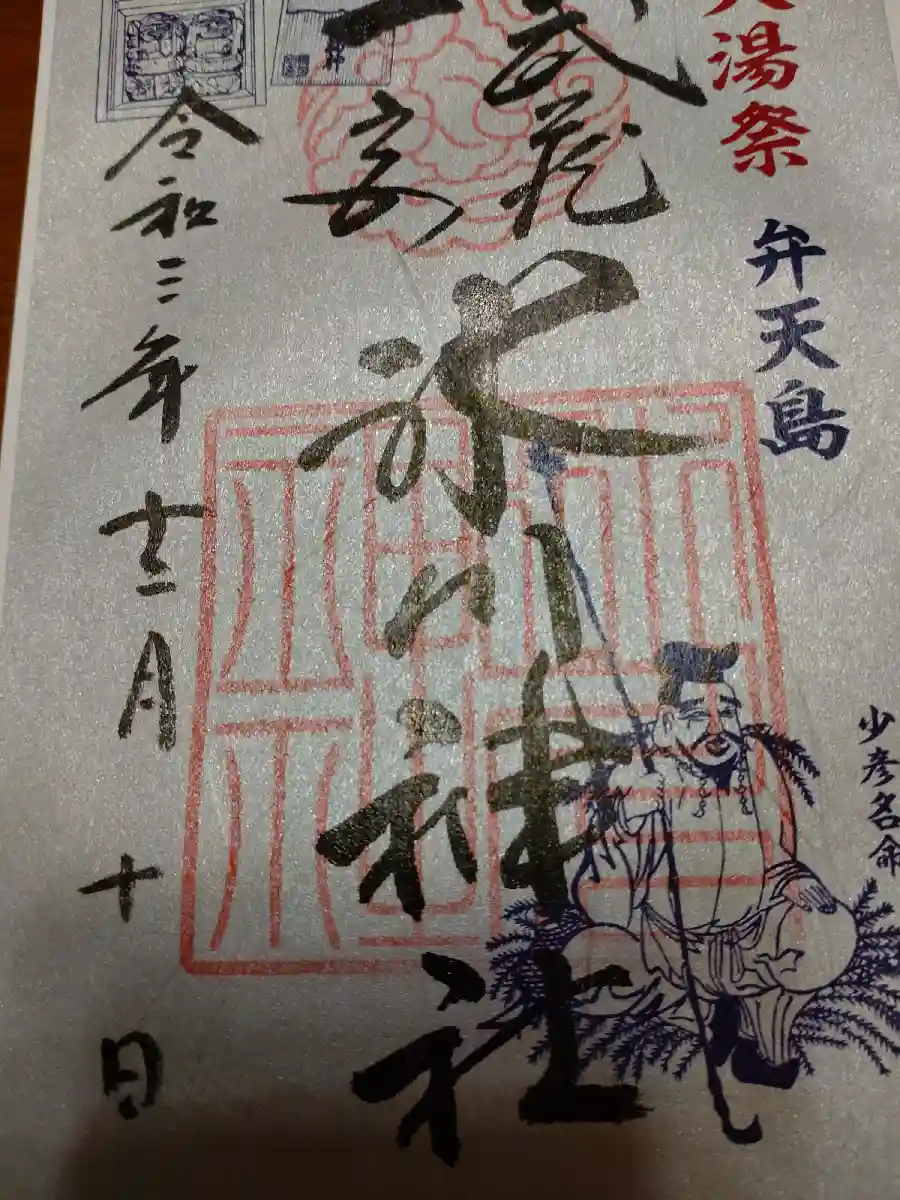 大湯祭
弁天島
少彦名命
武蔵
一宮
氷川神社
令和三年十二月十日